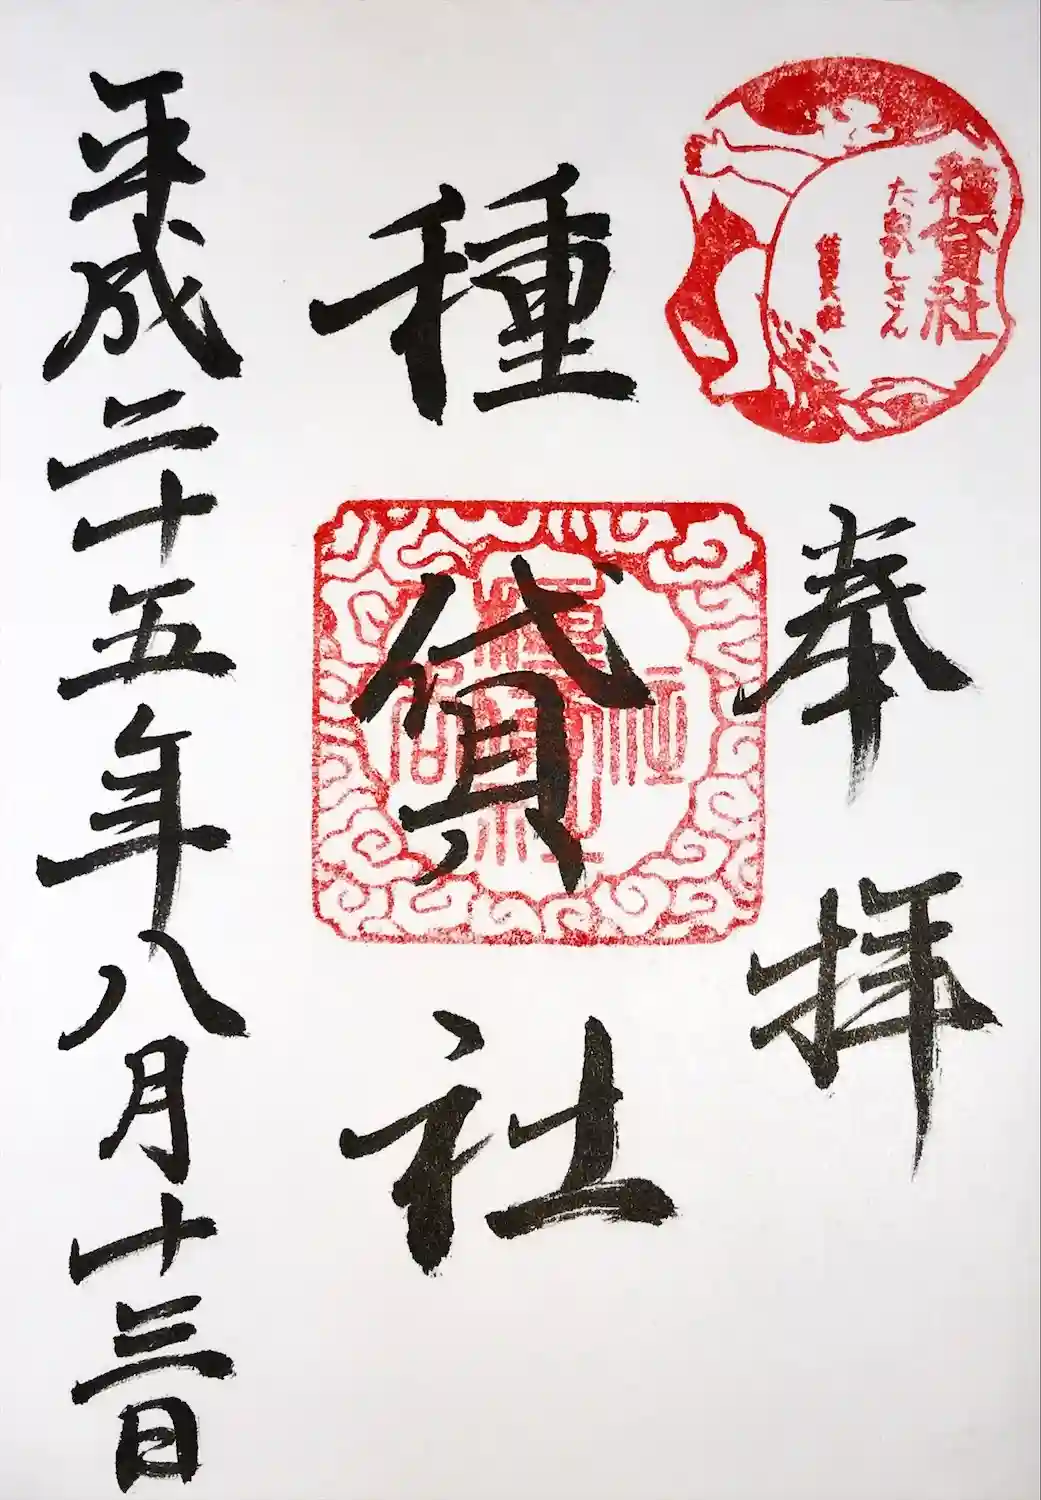 種貸社
たねかしさん
住吉大社
奉拝
種貸社
平成二十五年八月十三日